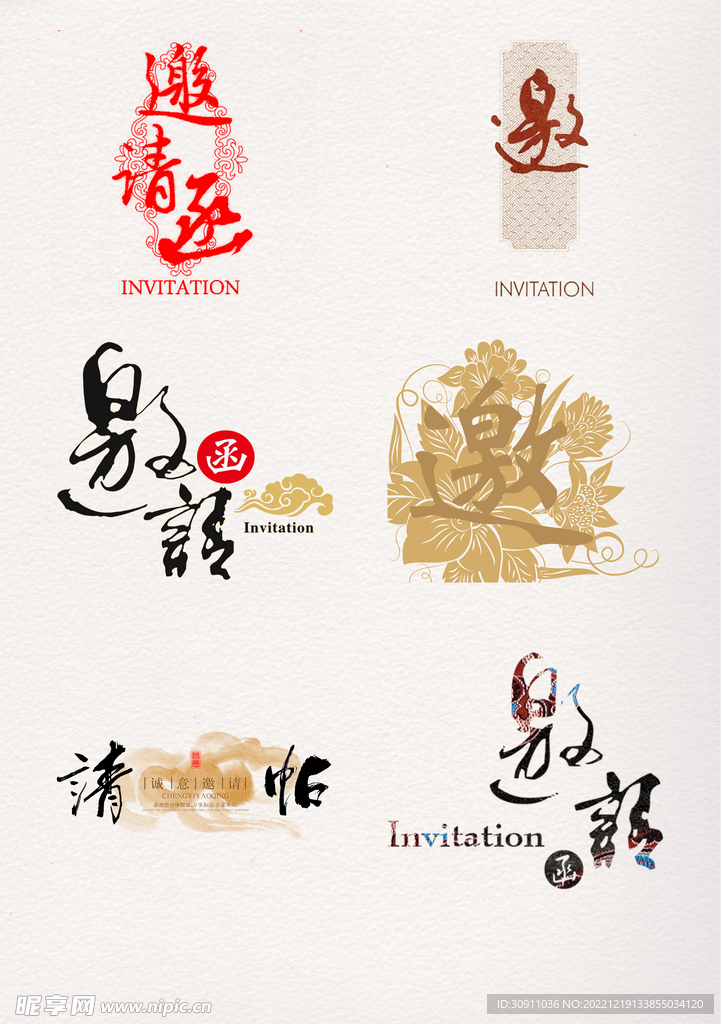 邀
请
函
INVITATION
邀
INVITATION
邀
函
請
Invitation
邀
請
帖
诚意邀请
CHENGYIYAOQING
邀
請
Invitation
函
昵享网 www.nipic.cn
ID:30911036 NO:20221219133855034120